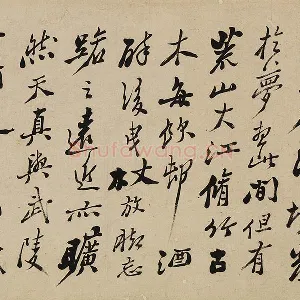 於夢此間但有
荒山大江脩竹古
木每飲邨酒
醉後曳杖放脚忘
路之遠近亦曠
然天真與武陵
shufawang.cn